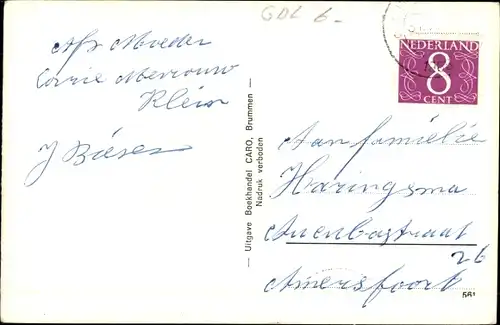 GDL 6-
NEDERLAND
8
CENT
Moeder
Corrie Mevrouw
Klein
J Biesen
— Uitgave Boekhandel CARO, Brummen —
Nadruk verboden
Aan familie
Haringsma
26
Amersfoort